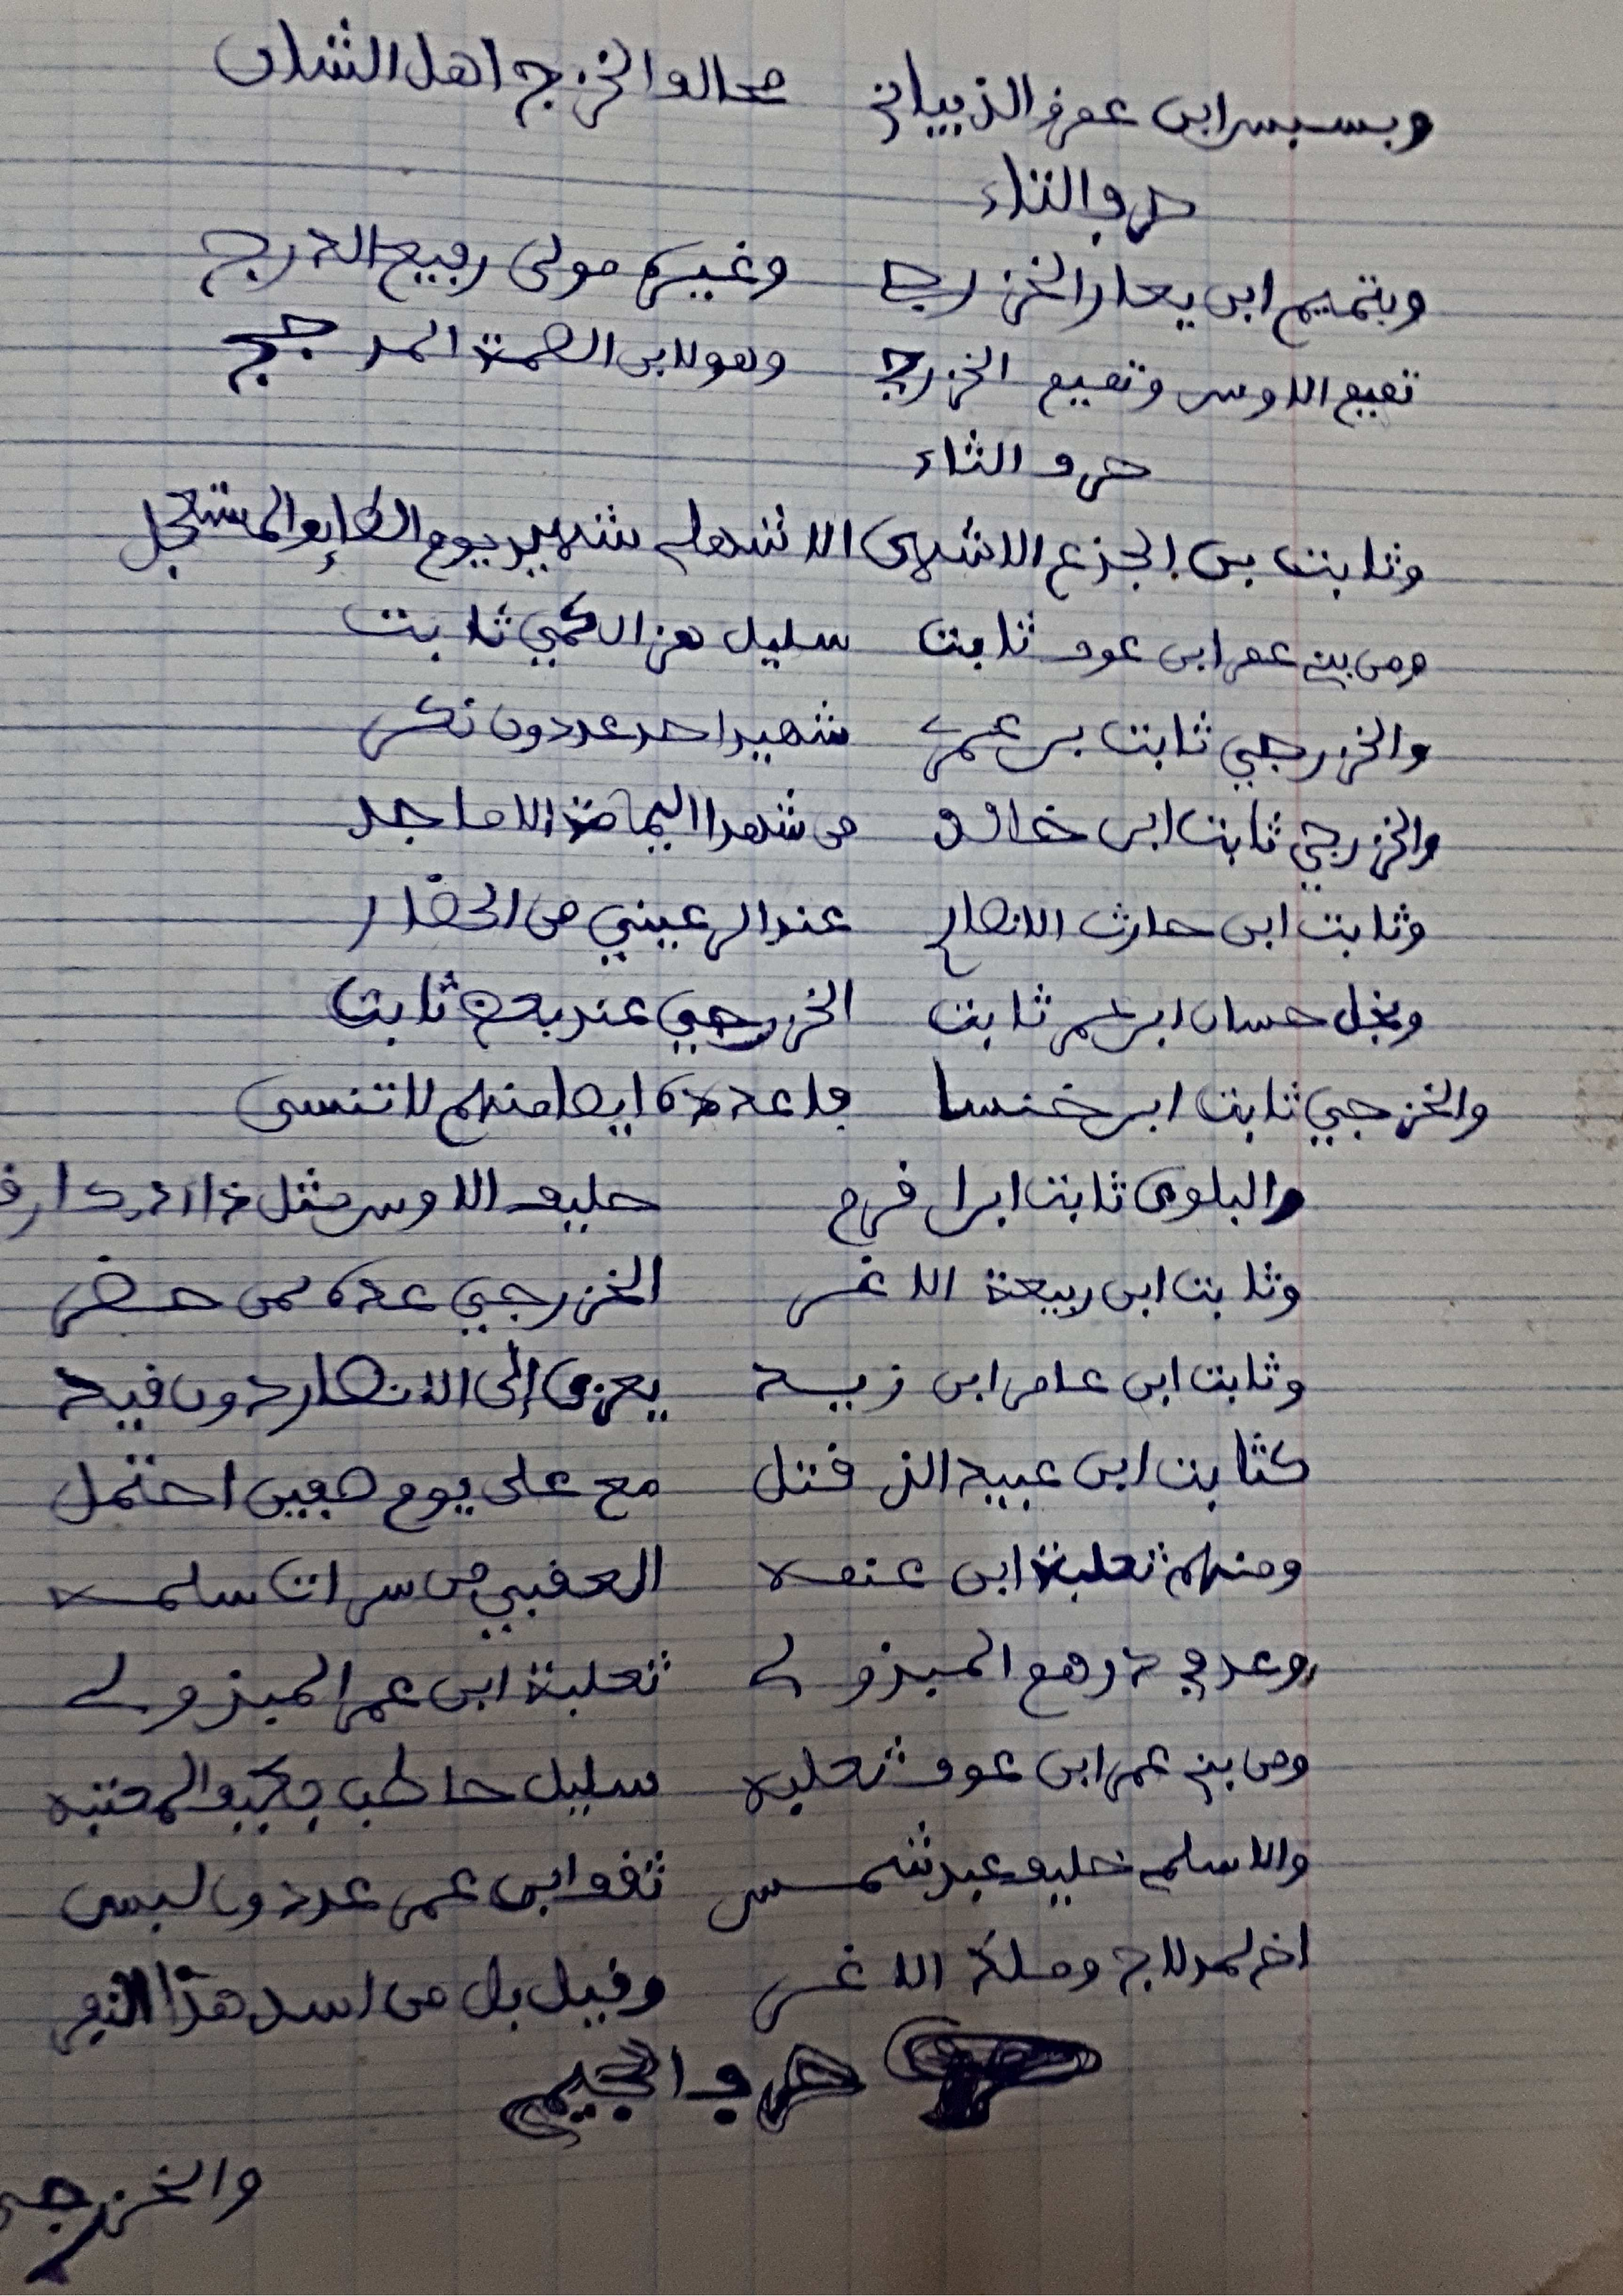 وبسبس ابن عمرو الذبياني محالف الخزرج اهل الشان
حرف التاء
وبتميم ابن يعار الخزرج وغيره مولى رفيع الدرج
تميم الاوس وتميم الخزرج وهو لابن الصمة المدجج
حرف الثاء
وثابت بن الجزع الاشهلي شهيد يوم الطايف المستعجل
ومن بني عمر ابن عوف ثابت سليل هزال كمي ثابت
والخزرجي ثابت بن عمر شهيد احد عد دون نكر
والخزرجي ثابت ابن خالد من شهدا اليمامة الاماجد
وثابت ابن حارث الانصار عند الرعيني من الحضار
ونجل حسان ابن عمر ثابت الخزرجي عند بعض ثابت
والخزجي ثابت ابن خنسا فاعدده ايضا منهم لا تنسى
والبلوي ثابت ابن اقرم حليف الاوس مثل ذا
وثابت ابن ربيعة الاغر الخزرجي عده ممن حضر
وثابت ابن عامر ابن زيد يعزى إلى الانصار دون قيد
كثابت ابن عبيد الذ قتل مع على يوم صفين احتمل
ومنهم ثعلبة ابن عنمه العقبي من سرات سلمه
وعد في رهع المبذول ثعلبة ابن عمر المبذول
ومن بني عمر ابن عوف ثعلبه سليل حاطب المعتبه
والاسلمي حليف عبد شمس ثقف ابن عمر عد دون لبس
اخ لمدلاج ومالك الاغر وقيل بل من اسد هذا النفر
حرف الجيم
والخزرجي